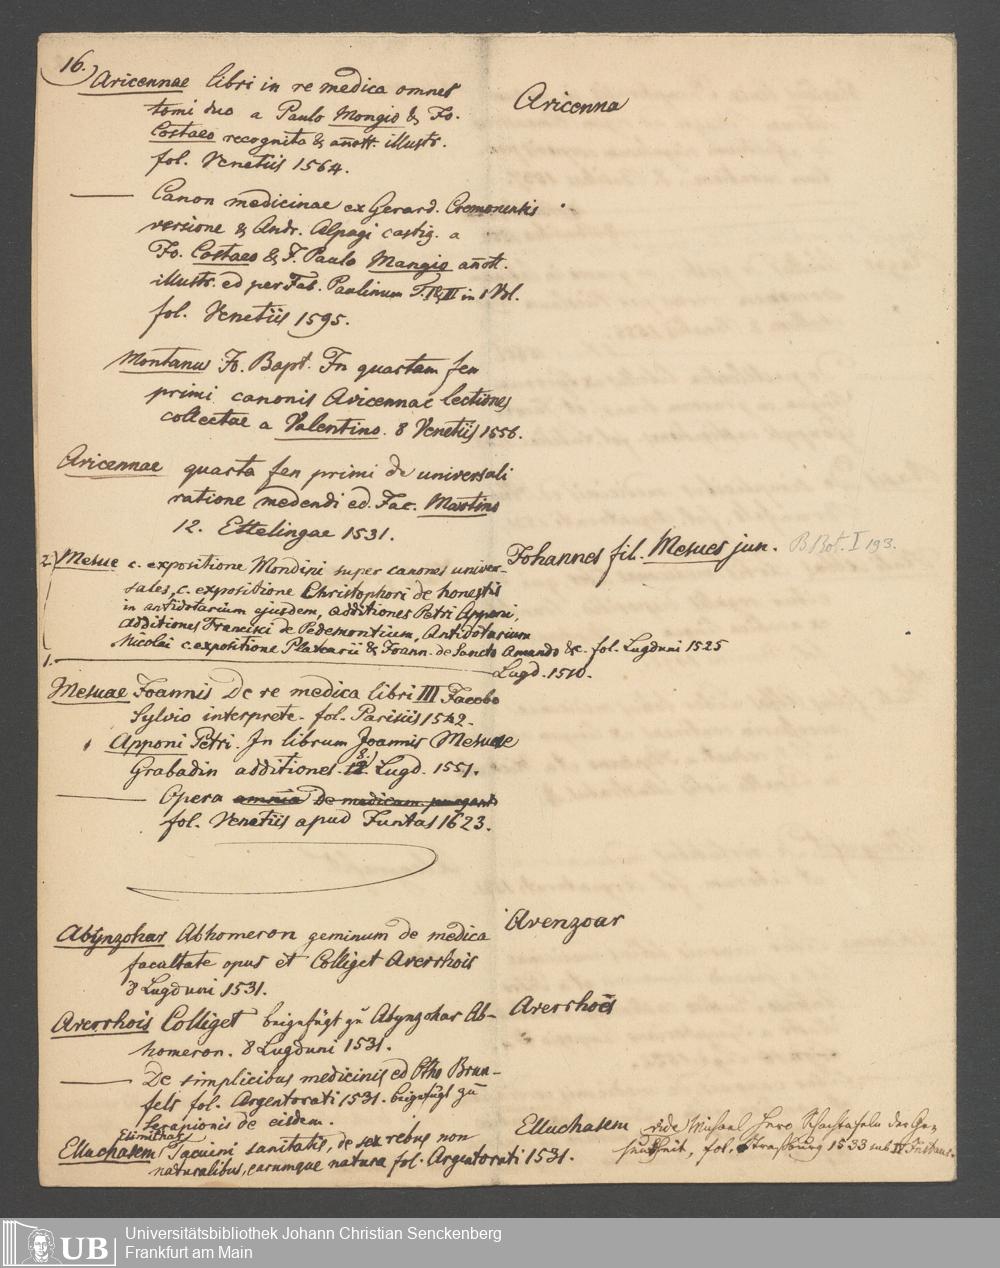 16.
Avicennae libri in re medica omnes
tomi duo a Paulo Mongio & Jo.
Costaeo recognita & añott. illustr.
fol. Venetiis 1564.
Avicenna
Canon medicinae ex Gerard. Cremonensis
versione & Andr. Alpagi castig. a
Jo. Costaeo & J. Paulo Mangio añott.
illustr. ed per Fab. Paulinum T. I & II in 1 Vol.
fol. Venetiis 1595.
Montanus Jo. Bapt. In quartam fen
primi canonis Avicennae lectiones
collectae a Valentino. 8 Venetiis 1556.
Avicennae quarta fen primi de universali
ratione medendi ed. Jac. Mantino
12. Ettelingae 1531.
Johannes fil. Mesues jun. B Bot. I 193.
2. Mesue c. expositione Mondini super canones univer-
sales, c. expositione Christophori de honestis
in antidotarium ejusdem, additiones Petri Apponi,
additiones Francisci de Pedemontium, Antidotarium
Nicolai c. expositione Platearii & Joann. de Sancto Amando &c. fol. Lugduni 1525
1. Lugd. 1510.
Mesuae Joannis De re medica libri III Jacobo
Sylvio interprete. fol. Parisiis 1542.
Apponi Petri. In librum Joannis Mesuae
Grabadin additiones. 8. Lugd. 1551.
Opera omnia De medicam. purgant.
fol. Venetiis apud Juntas 1623.
Abynzohar Abhomeron geminum de medica
facultate opus et Colliget Averrhois
8 Lugduni 1531.
Avenzoar
Averrhois Colliget beigefügt zu Abynzohar Ab-
homeron. 8 Lugduni 1531.
Averrhoës
De simplicibus medicinis ed Otho Brun-
fels fol. Argentorati 1531. beigefügt zu
Serapionis de eisdem.
Elimithar
Elluchasem Tacuini sanitatis, de sex rebus non
naturalibus, earumque natura fol. Argentorati 1531.
Elluchasem vide Michael Hero Schachtafeln der Ge-
sundheit, fol. Straßburg 1533 sub IV
Universitätsbibliothek Johann Christian Senckenberg
Frankfurt am Main
UB